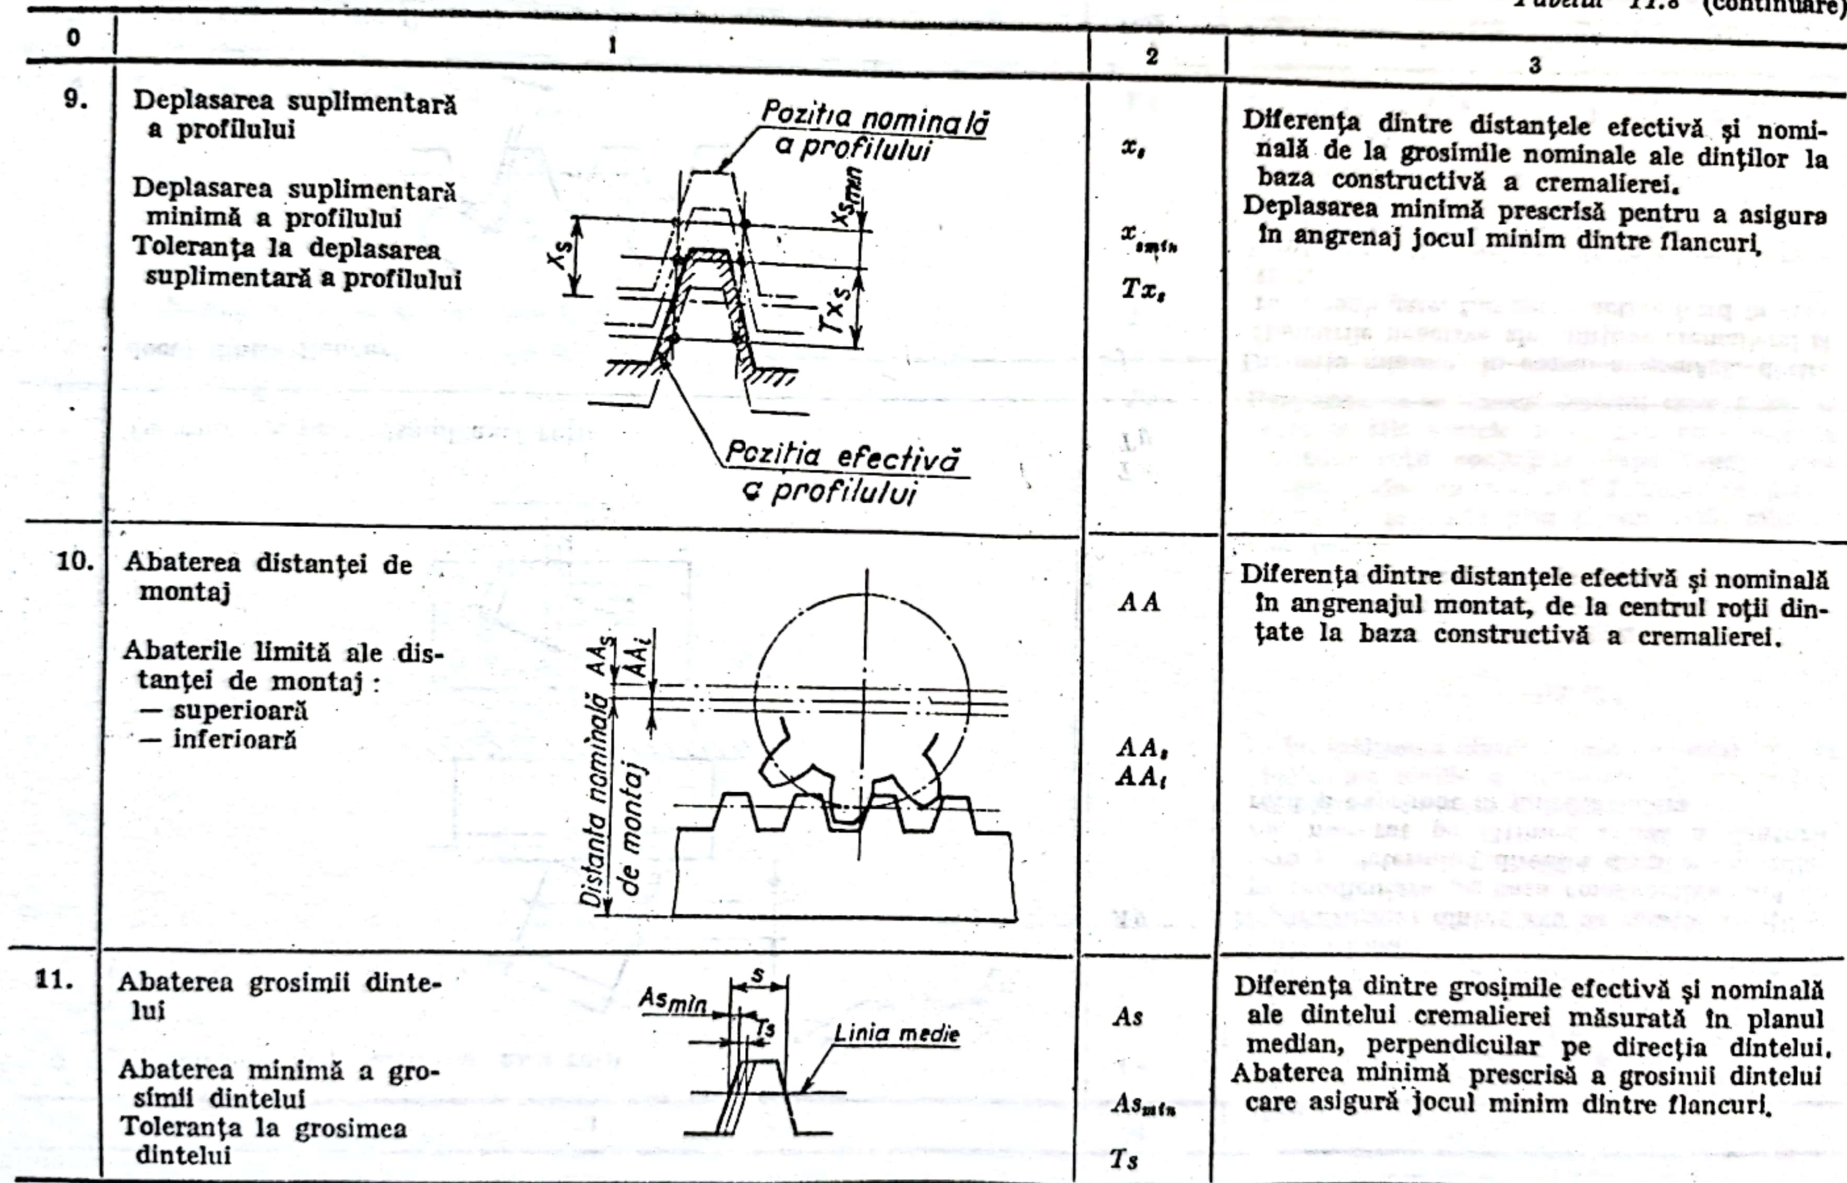 Tabelul 11.8 (continuare)
0 1 2 3
9. Deplasarea suplimentară
a profilului
Deplasarea suplimentară
minimă a profilului
Toleranța la deplasarea
suplimentară a profilului
Poziția nominală
a profilului
xs
xsmin
Txs
Poziția efectivă
a profilului
xs
xsmin
Txs
Diferența dintre distanțele efectivă și nomi-
nală de la grosimile nominale ale dinților la
baza constructivă a cremalierei.
Deplasarea minimă prescrisă pentru a asigura
în angrenaj jocul minim dintre flancuri.
10. Abaterea distanței de
montaj
Abaterile limită ale dis-
tanței de montaj :
— superioară
— inferioară
AAs
AAi
Distanta nominală
de montaj
AA
AAs
AAi
Diferența dintre distanțele efectivă și nominală
în angrenajul montat, de la centrul roții din-
țate la baza constructivă a cremalierei.
11. Abaterea grosimii dinte-
lui
Abaterea minimă a gro-
simii dintelui
Toleranța la grosimea
dintelui
s
Asmin
Ts
Linia medie
As
Asmin
Ts
Diferența dintre grosimile efectivă și nominală
ale dintelui cremalierei măsurată în planul
median, perpendicular pe direcția dintelui.
Abaterea minimă prescrisă a grosimii dintelui
care asigură jocul minim dintre flancuri.